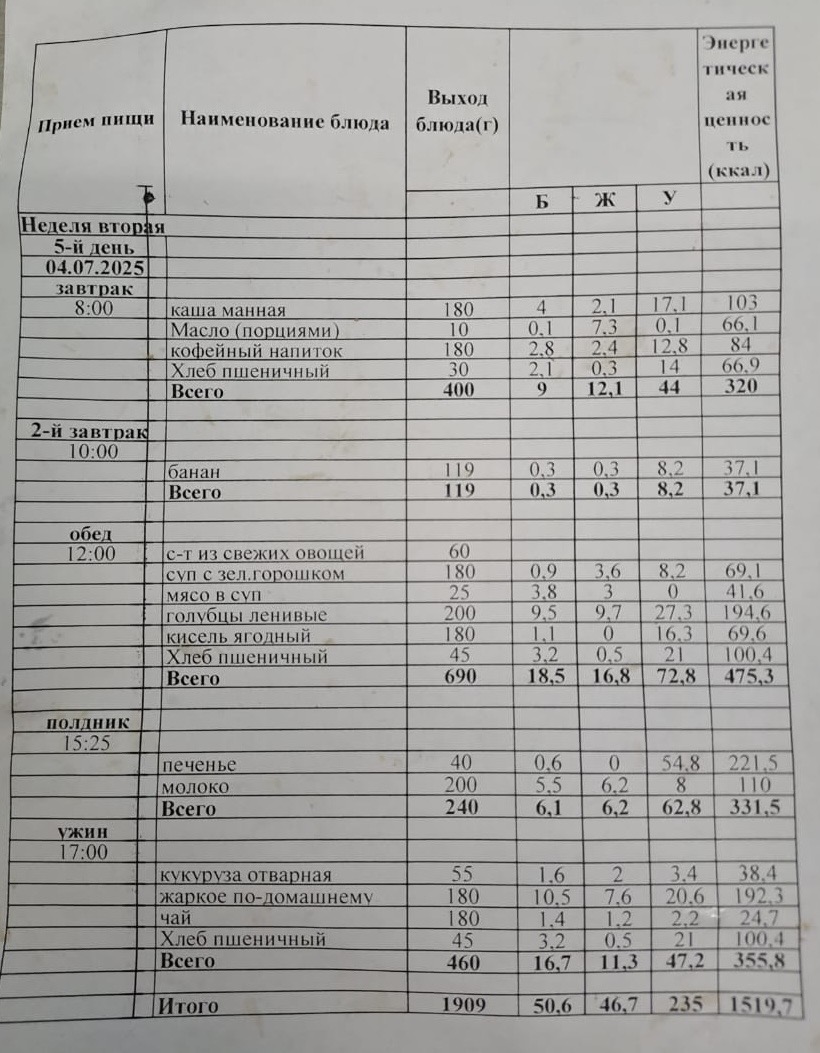 Прием пищи Наименование блюда Выход блюда(г) Энерге тическ ая ценнос ть (ккал)
Б Ж У
Неделя вторая
5-й день
04.07.2025
завтрак
8:00 каша манная 180 4 2,1 17,1 103
Масло (порциями) 10 0,1 7,3 0,1 66,1
кофейный напиток 180 2,8 2,4 12,8 84
Хлеб пшеничный 30 2,1 0,3 14 66,9
Всего 400 9 12,1 44 320
2-й завтрак
10:00
банан 119 0,3 0,3 8,2 37,1
Всего 119 0,3 0,3 8,2 37,1
обед
12:00 с-т из свежих овощей 60
суп с зел.горошком 180 0,9 3,6 8,2 69,1
мясо в суп 25 3,8 3 0 41,6
голубцы ленивые 200 9,5 9,7 27,3 194,6
кисель ягодный 180 1,1 0 16,3 69,6
Хлеб пшеничный 45 3,2 0,5 21 100,4
Всего 690 18,5 16,8 72,8 475,3
полдник
15:25
печенье 40 0,6 0 54,8 221,5
молоко 200 5,5 6,2 8 110
Всего 240 6,1 6,2 62,8 331,5
ужин
17:00
кукуруза отварная 55 1,6 2 3,4 38,4
жаркое по-домашнему 180 10,5 7,6 20,6 192,3
чай 180 1,4 1,2 2,2 24,7
Хлеб пшеничный 45 3,2 0,5 21 100,4
Всего 460 16,7 11,3 47,2 355,8
Итого 1909 50,6 46,7 235 1519,7